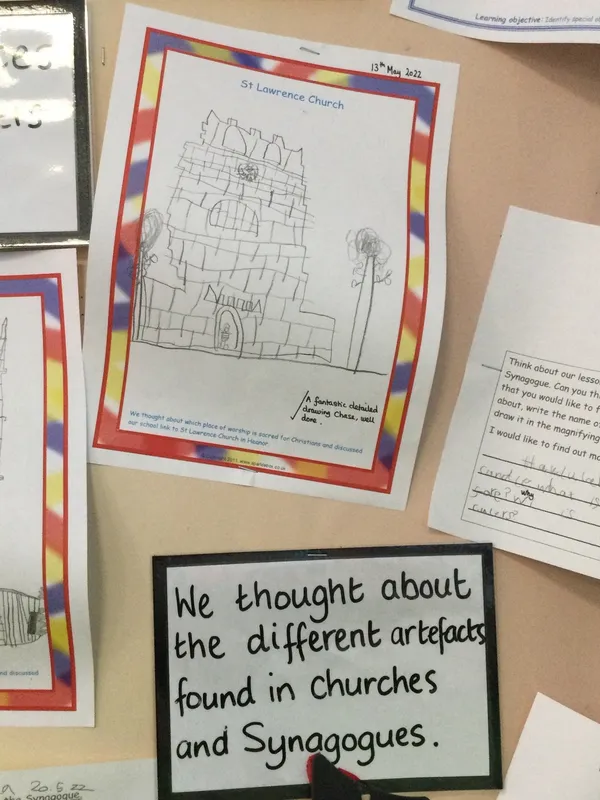 Learning objective: Identify special
13th May 2022
St Lawrence Church
A fantastic detailed
drawing Chase, well
done.
We thought about which place of worship is sacred for Christians and discussed
our school link to St Lawrence Church in Heanor.
nd discussed
Think about our lesso
Synagogue. Can you th
that you would like to f
about, write the name o
draw it in the magnifying
I would like to find out mo
why
is
We thought about
the different artefacts
found in Churches
and Synagogues.
20.5.22
the Synagogue